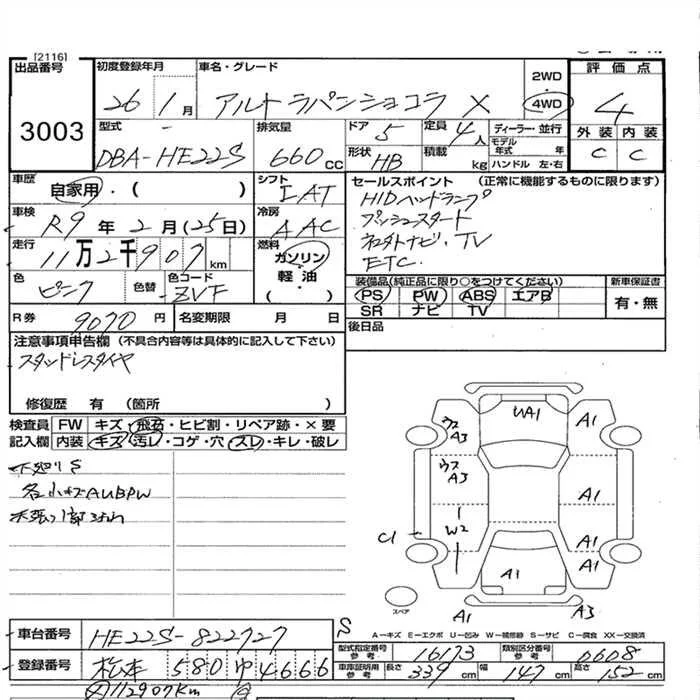 [2116]
出品番号
3003
初度登録年月
26 1月
車名・グレード
アルト ラパンショコラ X
2WD
4WD
評価点
4
外装 内装
C C
型式
DBA-HE22S
排気量
660 CC
ドア
5
定員
4人
形状
HB
積載
kg
ディーラー・並行
モデル年式 年
ハンドル 左・右
車歴
自家用・( )
シフト
IAT
車検
R9年2月(25日)
冷房
AAC
走行
11万2千907km
燃料
ガソリン
軽油
( )
色
ピンク
色替
色コード
ZVF
R券
9070円
名変期限 月 日
セールスポイント (正常に機能するものに限ります)
HIDヘッドランプ
プッシュスタート
ナビ・TV
ETC.
装備品(純正品に限り○をつけてください)
PS PW ABS エアB
SR ナビ TV
新車保証書
有・無
後日品
注意事項申告欄 (不具合内容等は具体的に記入して下さい)
スタッドレスタイヤ
修復歴 有 (箇所 )
検査員記入欄
FW キズ・飛石・ヒビ割・リペア跡・×要
内装 キズ・汚レ・コゲ・穴・スレ・キレ・破レ
下廻りS
各小キズAUBPW
UA1
A1
ウス
A3
ウス
A3
A1
W2
C1
A1
A1
A1
スペア
A1
A3
S
A－キズ E－エクボ U－凹み W－補修跡 S－サビ C－腐食 XX－交換済
車台番号
HE22S-822727
登録番号
松本 580 ゆ 4666
型式指定番号 参考
16173
類別区分番号 参考
0608
車庫証明用 参考
長さ 339cm
幅 147cm
高さ 152cm
112907km